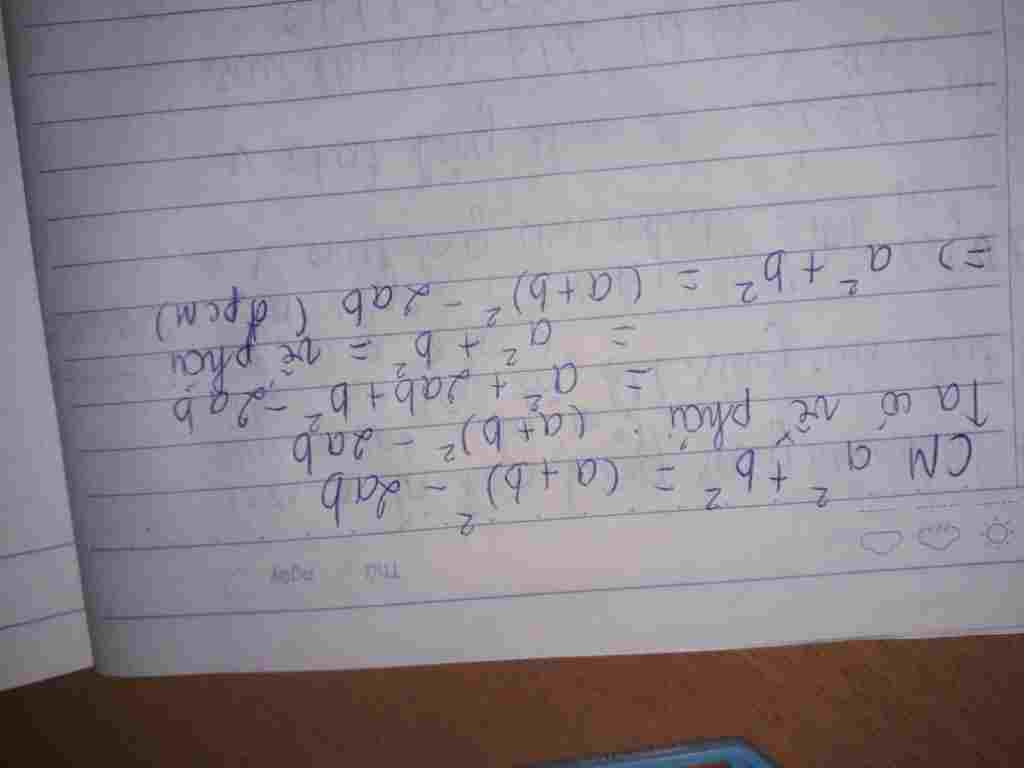 Thứ
Ngày
CM a² + b² = (a+b)² - 2ab
Ta có vế phải : (a+b)² - 2ab
= a² + 2ab + b² - 2ab
= a² + b² = vế phải
=) a² + b² = (a+b)² - 2ab (đpcm)